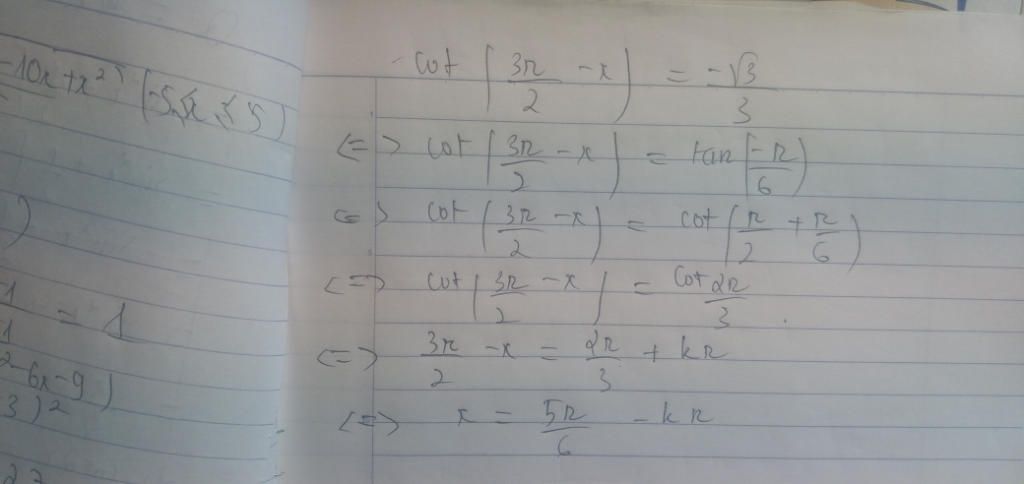 -10x+x²) (-5≤x≤5)
)
-1
-1 = 1
²-6x-9)
3)²
cot (3π/2 - x) = -√3/3
<=> cot (3π/2 - x) = tan (-π/6)
<=> cot (3π/2 - x) = cot (π/2 + π/6)
<=> cot (3π/2 - x) = cot 2π/3
<=> 3π/2 - x = 2π/3 + kπ
<=> x = 5π/6 - kπ